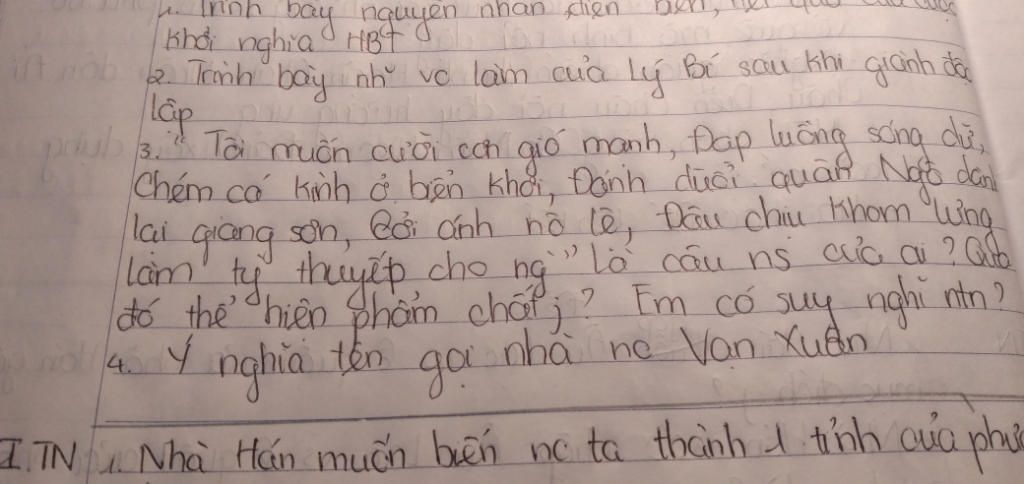 1. Trình bày nguyên nhân, diện biến, kết quả của cuộc
khởi nghĩa HBT
2. Trình bày nhữ vc làm của Lý Bí sau khi giành độc
lập
3. " Tôi muốn cưỡi cơn gió mạnh, Đạp luồng sóng dữ,
Chém cá kình ở biển khơi, Đánh đuổi quân Ngô dành
lại giang sơn, Cởi ánh nô lệ, Đâu chịu khom lưng
làm tỳ thuyếp cho ng " Là câu ns cuả ai ? Câu
đó thể hiện phẩm chất j ? Em có suy nghĩ ntn?
4. Ý nghĩa tên gọi nhà nc Vạn Xuân
I. TN 1. Nhà Hán muốn biến nc ta thành 1 tỉnh của